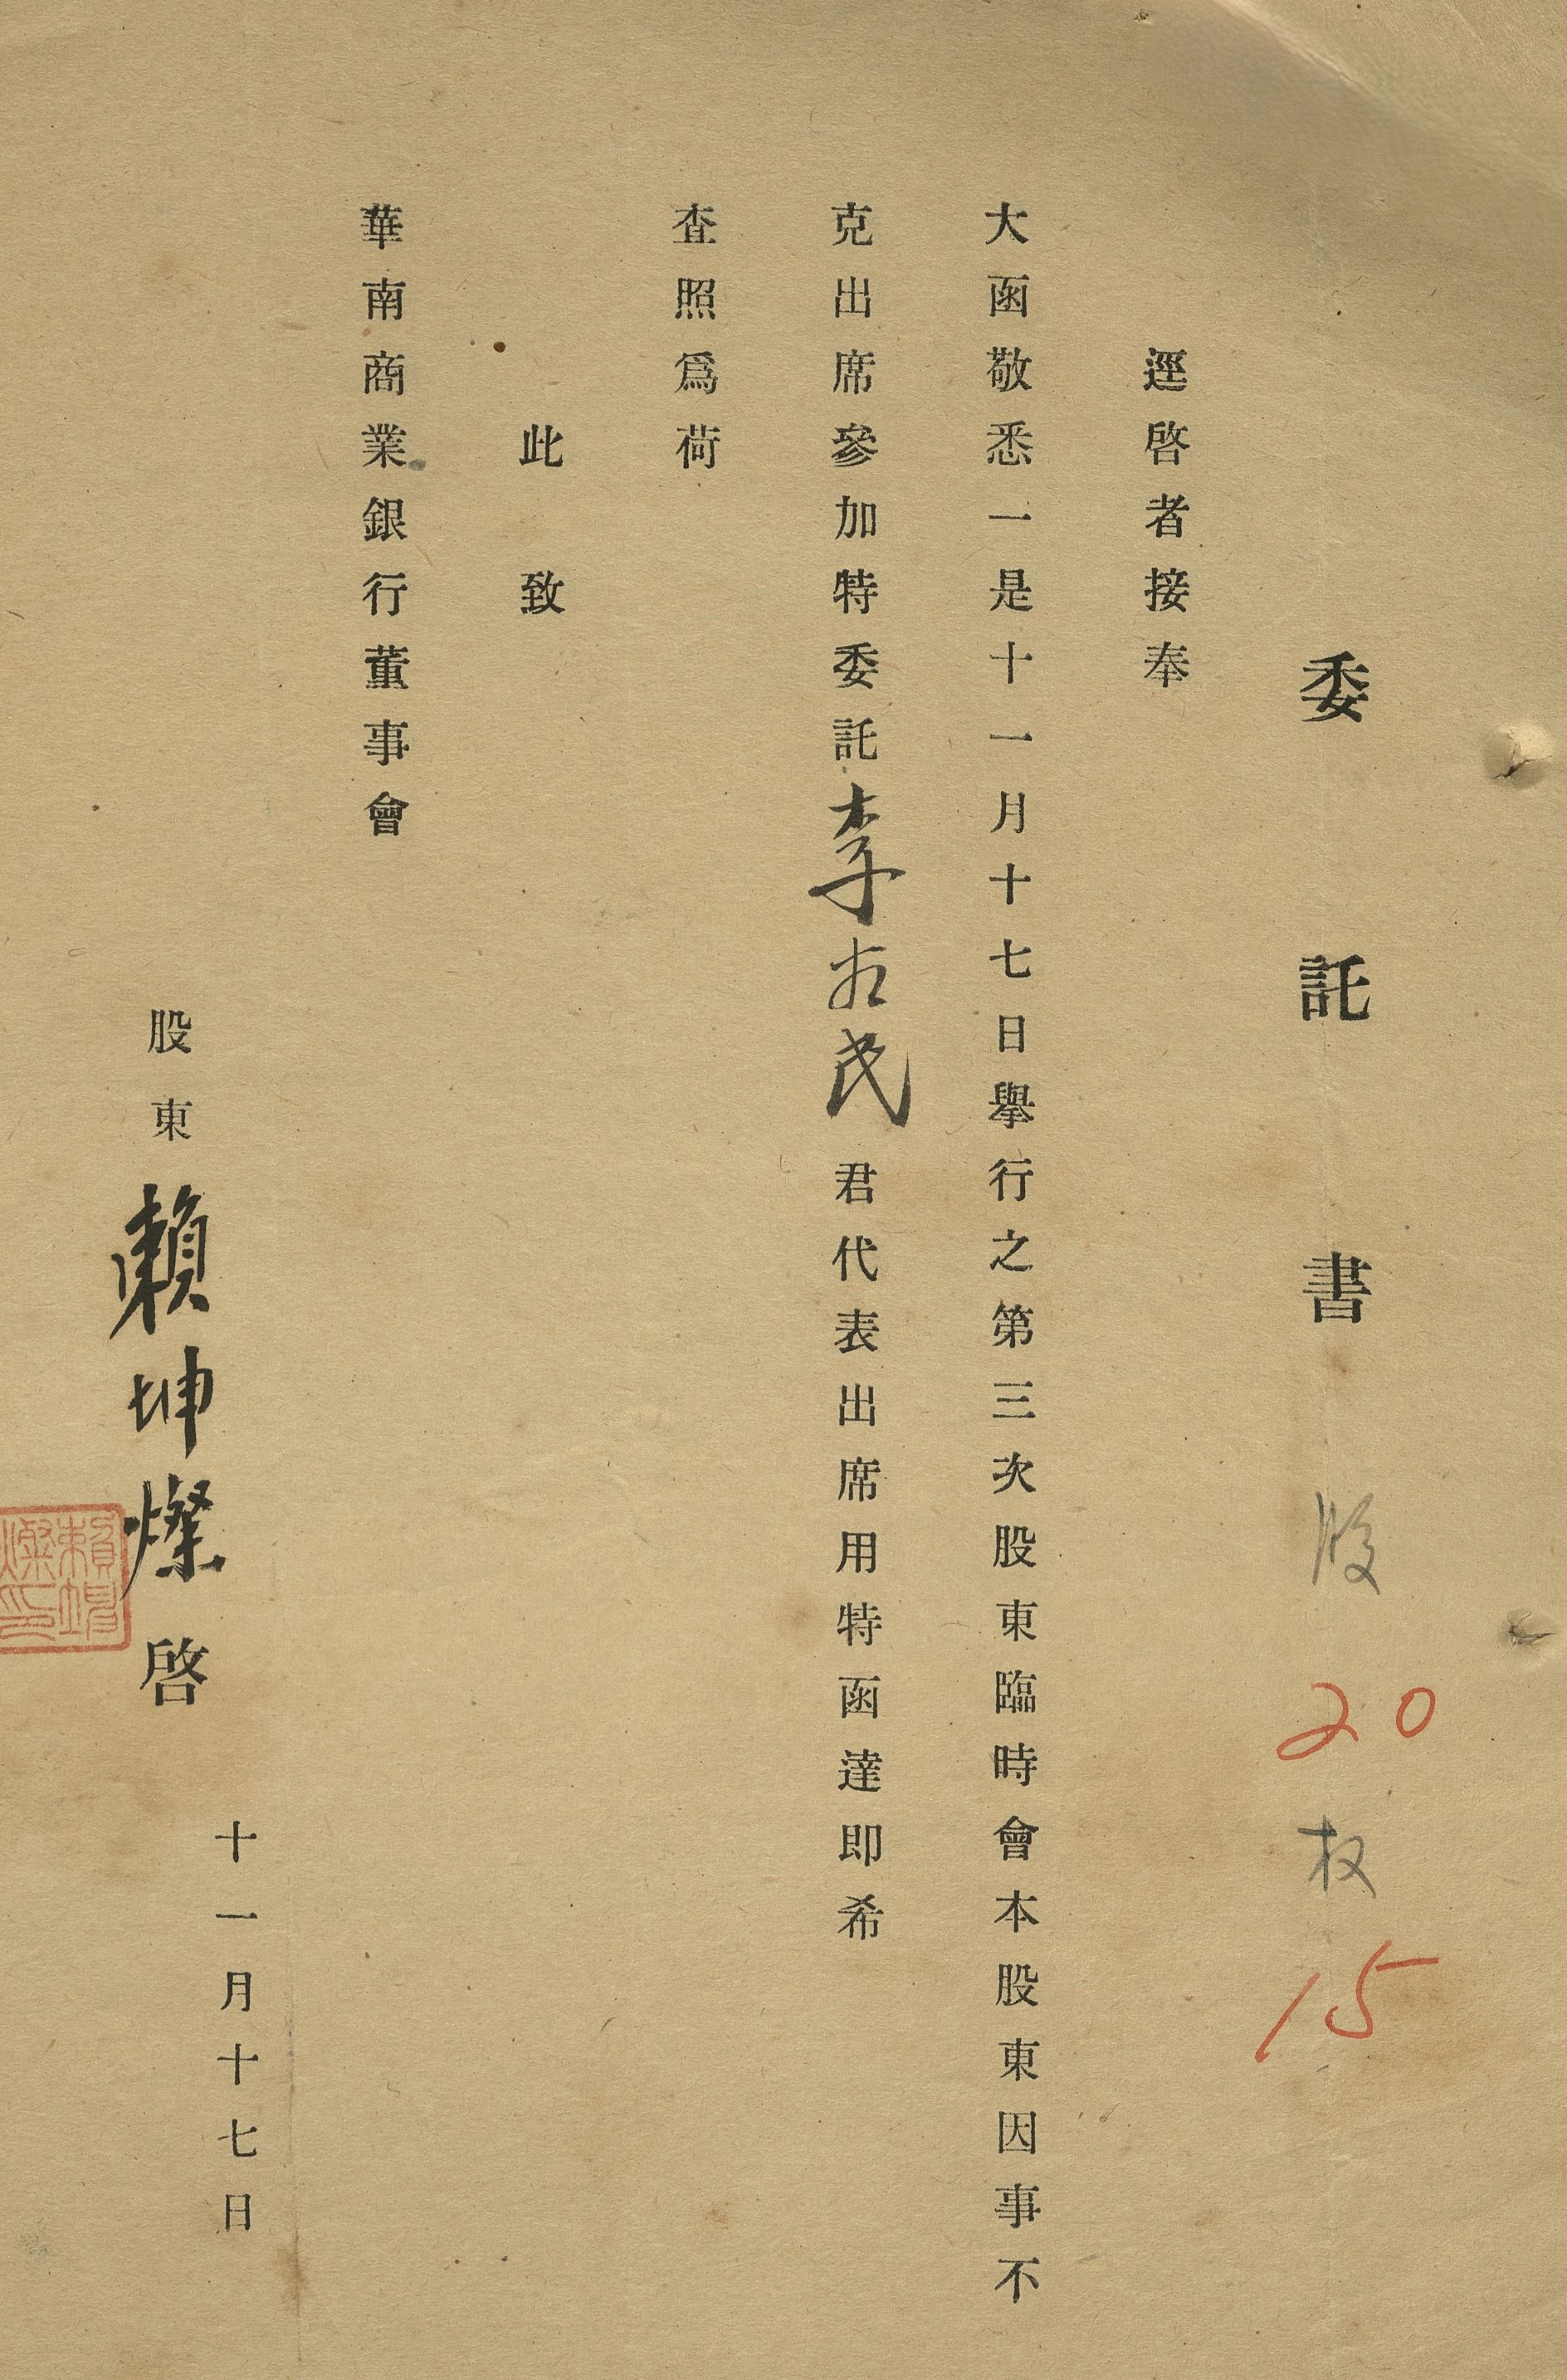 委託書 股 20 权 15
逕啓者接奉
大函敬悉一是十一月十七日舉行之第三次股東臨時會本股東因事不
克出席參加特委託李民君代表出席用特函達即希
查照爲荷
此致
華南商業銀行董事會
十一月十七日
股東 賴坤燦 啓
賴坤燦印